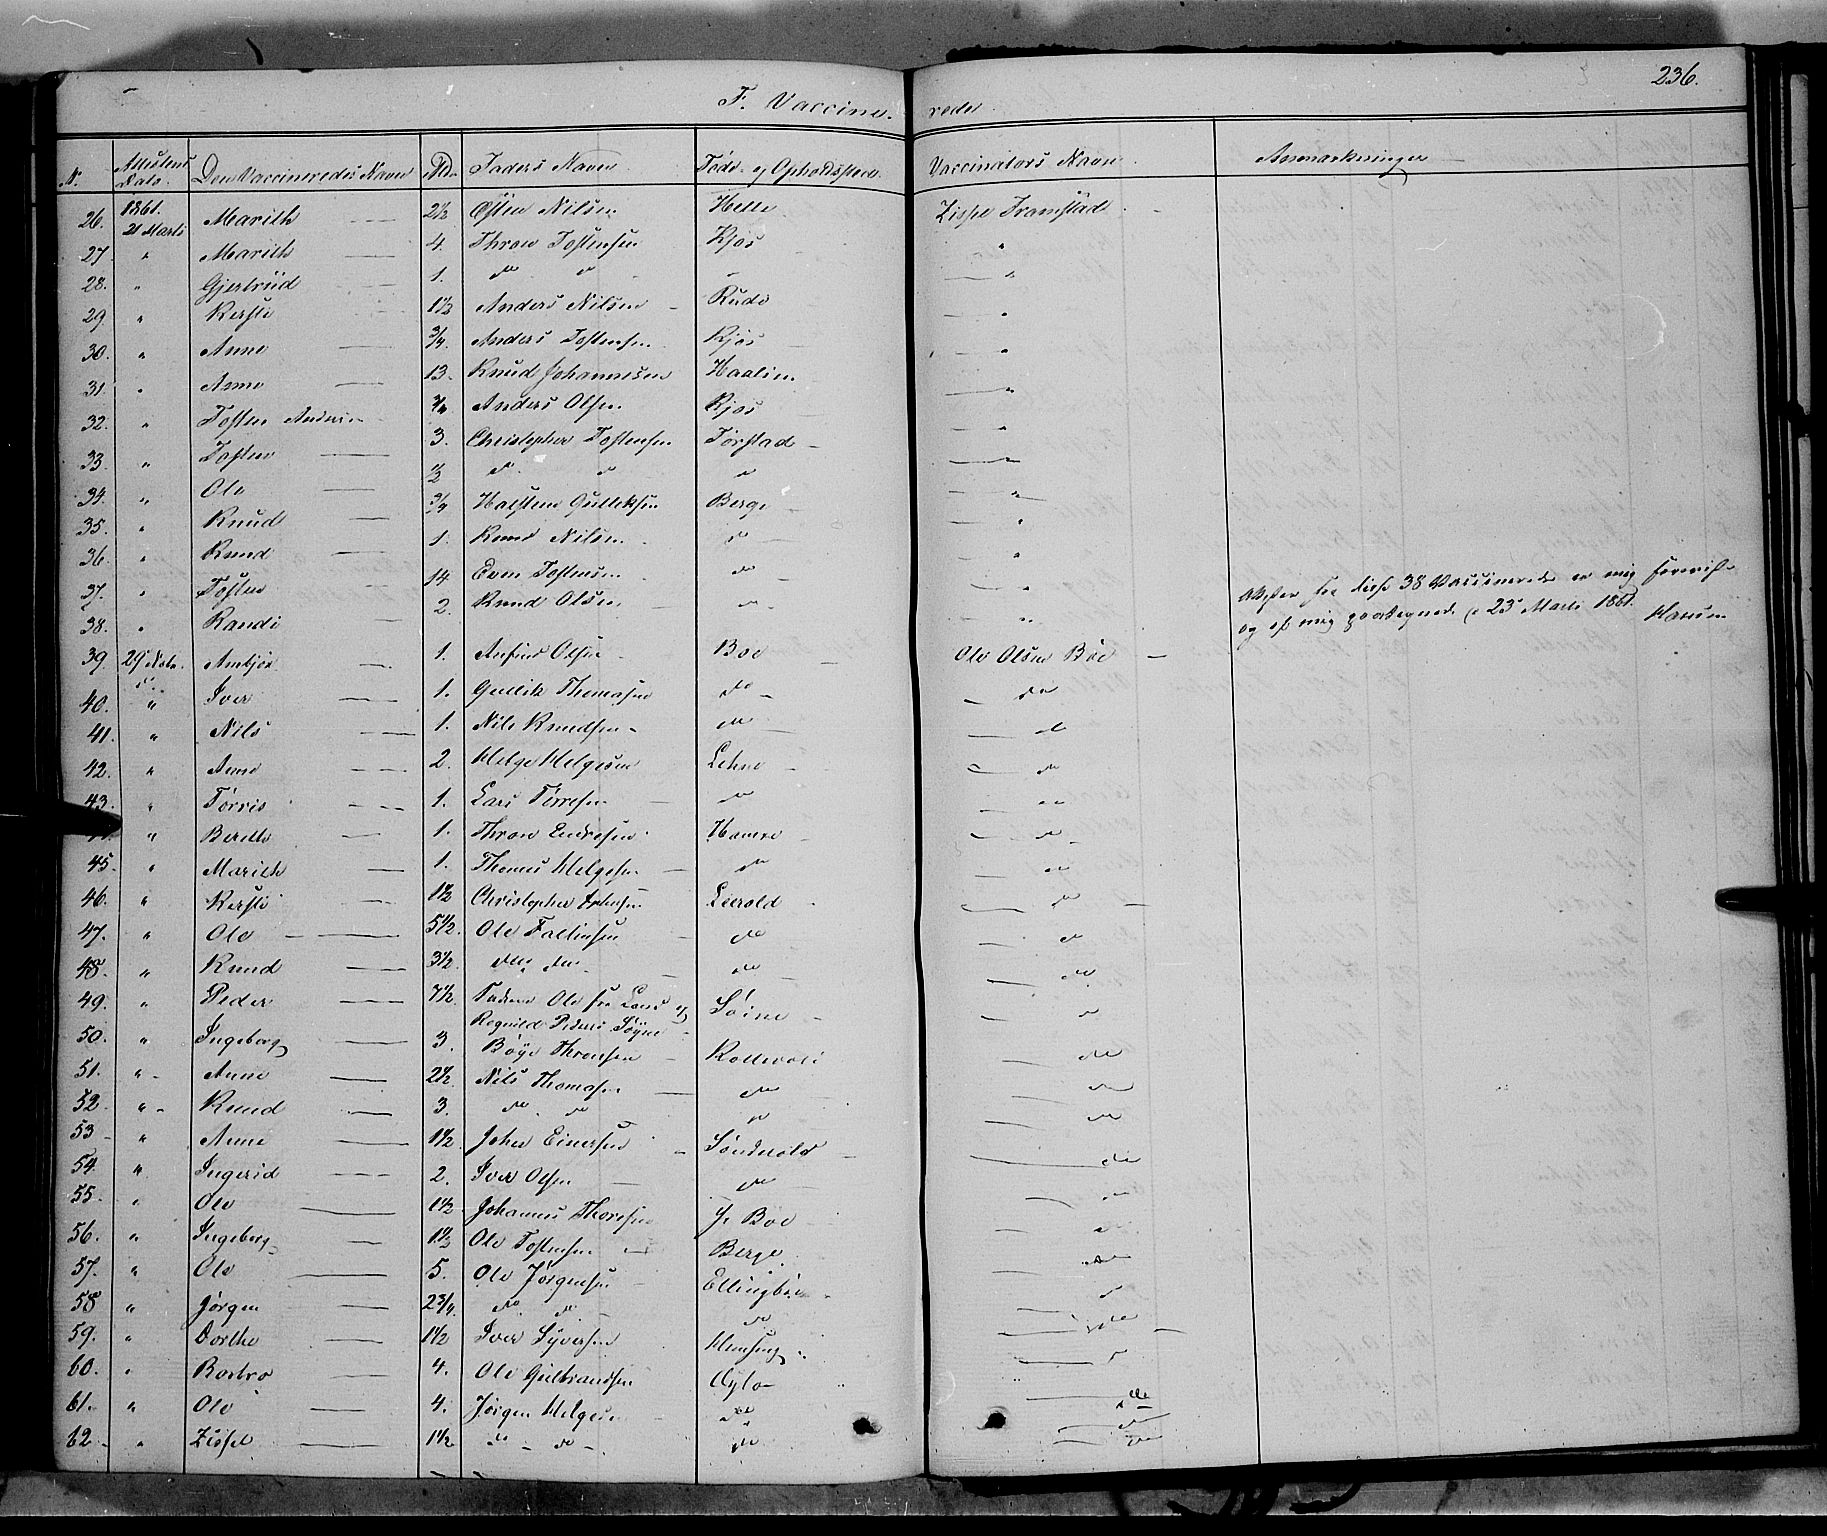 236.
F. Vaccine- rede
N. Attestens Dato. Den Vaccineredes Navn Ald. Faders Navn Føde- og Opholdssted Vaccinators Navn Anmærkninger
26. 1861. 21 Marts Marith 2½ Østen Nilsen Helle Zissel Framstad
27. " Marith 4. Thron Tostensen Kjos "
28. " Gjertrud 1. do do " "
29 " Kersti 1½ Anders Nilsen Rudi "
30. " Anne 3/4 Anders Tostensen Kjos "
31. " Anne 13. Knud Johannesen Haalien "
32. " Tosten Andersen 3/4 Anders Olsen Kjos "
33. " Tosten 3. Christopher Tostensen Torstad "
34. " Ole ½ do do do "
35. " Knud 3/4 Halsten Gulleksen Berge "
36. " Knud 1. Knud Nilsen do "
37. " Tosten 14 Even Tostensen do "
38. " Randi 2. Knud Olsen do "
Attester for disse 38 Vaccinerede er mig foreviist
og af mig paategnede d 23 Marts 1861.
39. 29 Ambjør 1. Anfind Olsen Boe Ole Olsen Böe
40. " Iver 1. Gullik Thomasen do do
41. " Nils 1. Nils Knudsen do do
42. " Anne 2. Helge Helgesen Lehne do
43. " Torris 1. Lars Torresen do do
" Berith 1. Thron Endresen do
45. " Marith 1. Thomas Helgesen do do
46. " Kersti 1½ Christopher do
47. " Ole 5½. Ole do do
48. " Knud 3½. do do do do
49. " Peder 7½ Ole fra og Söine do
Ragnild Peders Söyne
50. " Ingeborg 3. Böye Thronsen do
51. " Anne 2½. Nils Thomasen do do
52 " Knud 3. do do do do
53 " Anne 1½ Johan Einersen do
54. " Ingerid 2. Iver Olsen do do
55. " Ole 1½ Johannes Thoresen Boe do
56. " Ingeborg 1½ Ole Tostensen Berge do
57. " Ole 5. Ole Jörgensen do
58 " Jörgen 2 3/4. do do do do
59. " Dorthe 1½ Iver Syversen Hensing do
60. " Barbro 4. Ole Gulbrandsen Oylo
61. " Ole 4. Jörgen Helgesen do do
62. " Zissel 1½ do do do do